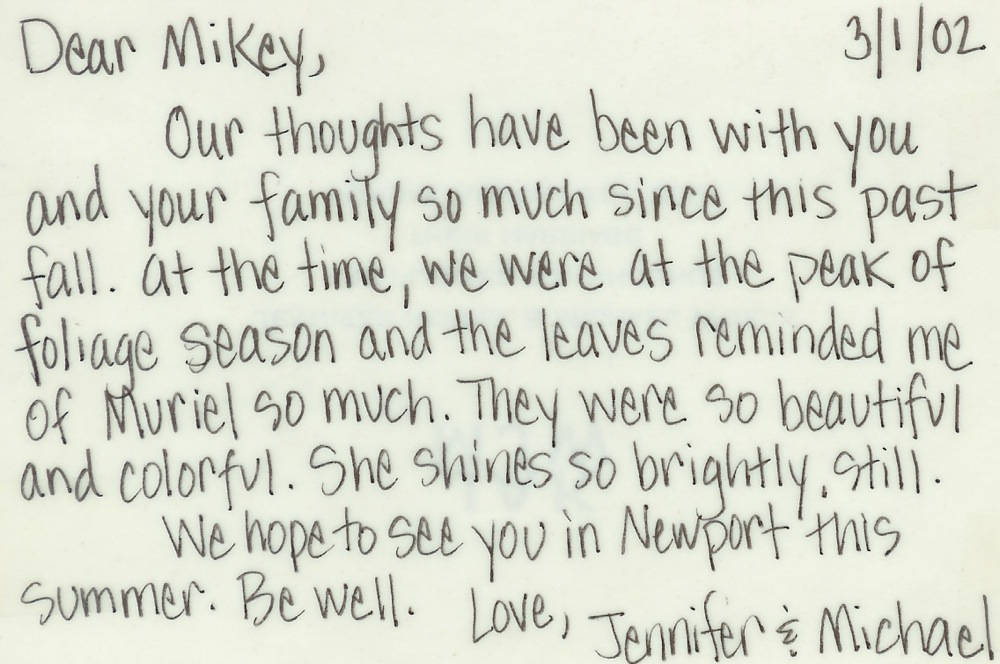 Dear Mikey, 3/1/02
Our thoughts have been with you
and your family so much since this past
fall. at the time, we were at the peak of
foliage season and the leaves reminded me
of Muriel so much. They were so beautiful
and colorful. She shines so brightly, still.
We hope to see you in Newport this
summer. Be well. Love, Jennifer & Michael